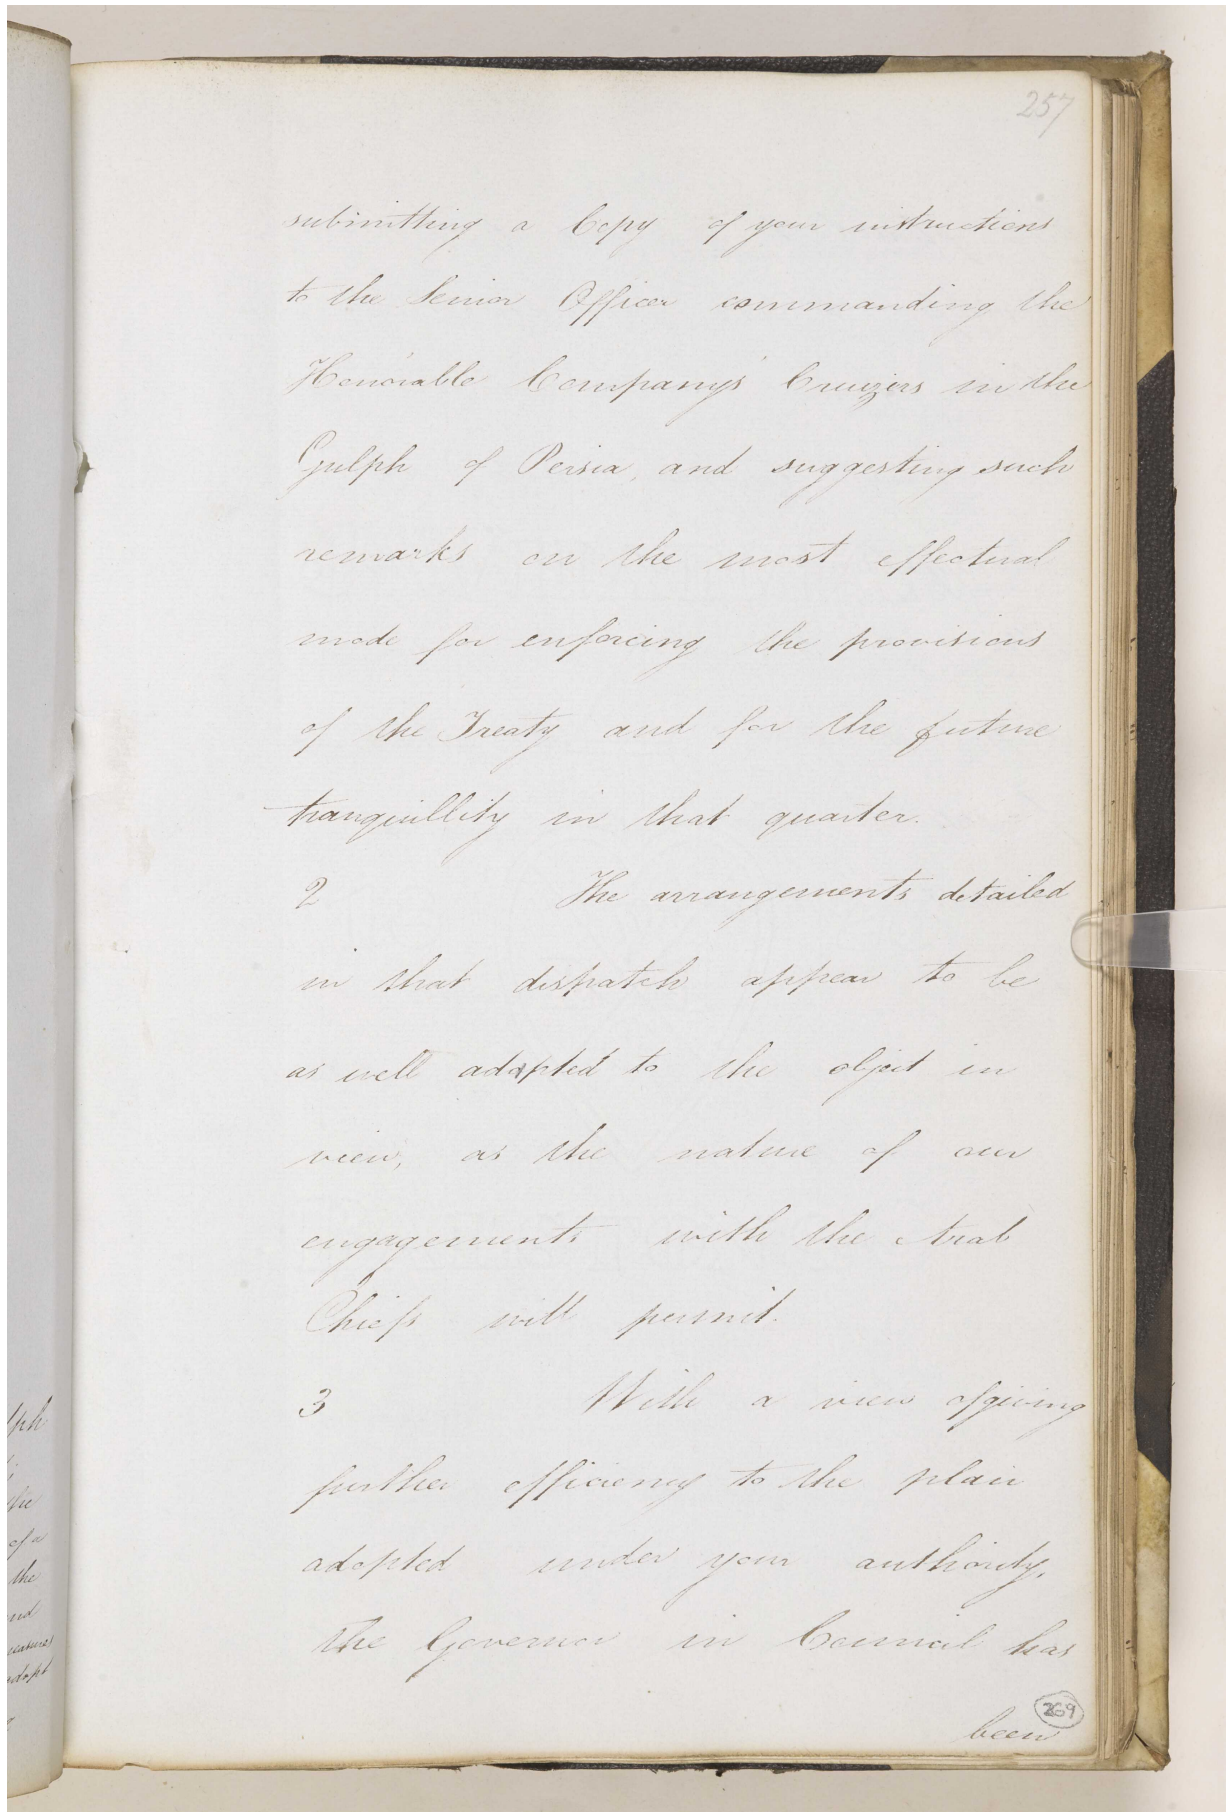 257
submitting a Copy of your instructions
to the Senior Officer commanding the
Honorable Company's Cruizers in the
Gulph of Persia, and suggesting such
remarks on the most effectual
mode for enforcing the provisions
of the Treaty and for the future
tranquillity in that quarter.
2 The arrangements detailed
in that dispatch appear to be
as well adapted to the object in
view, as the nature of our
engagements with the Arab
Chiefs will permit.
3 With a view of giving
further efficiency to the plan
adopted under your authority,
the Governor in Council has
been
269
lph
the
of a
the
and
measures
adopt